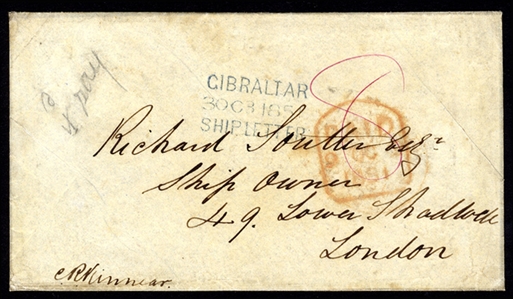 to pay
GIBRALTAR
30 OC 185
SHIP LETTER
8
Richard Soutter Esqr
Ship Owner
49. Lower Shadwell
London
PAID
1851
C R Kinnear.